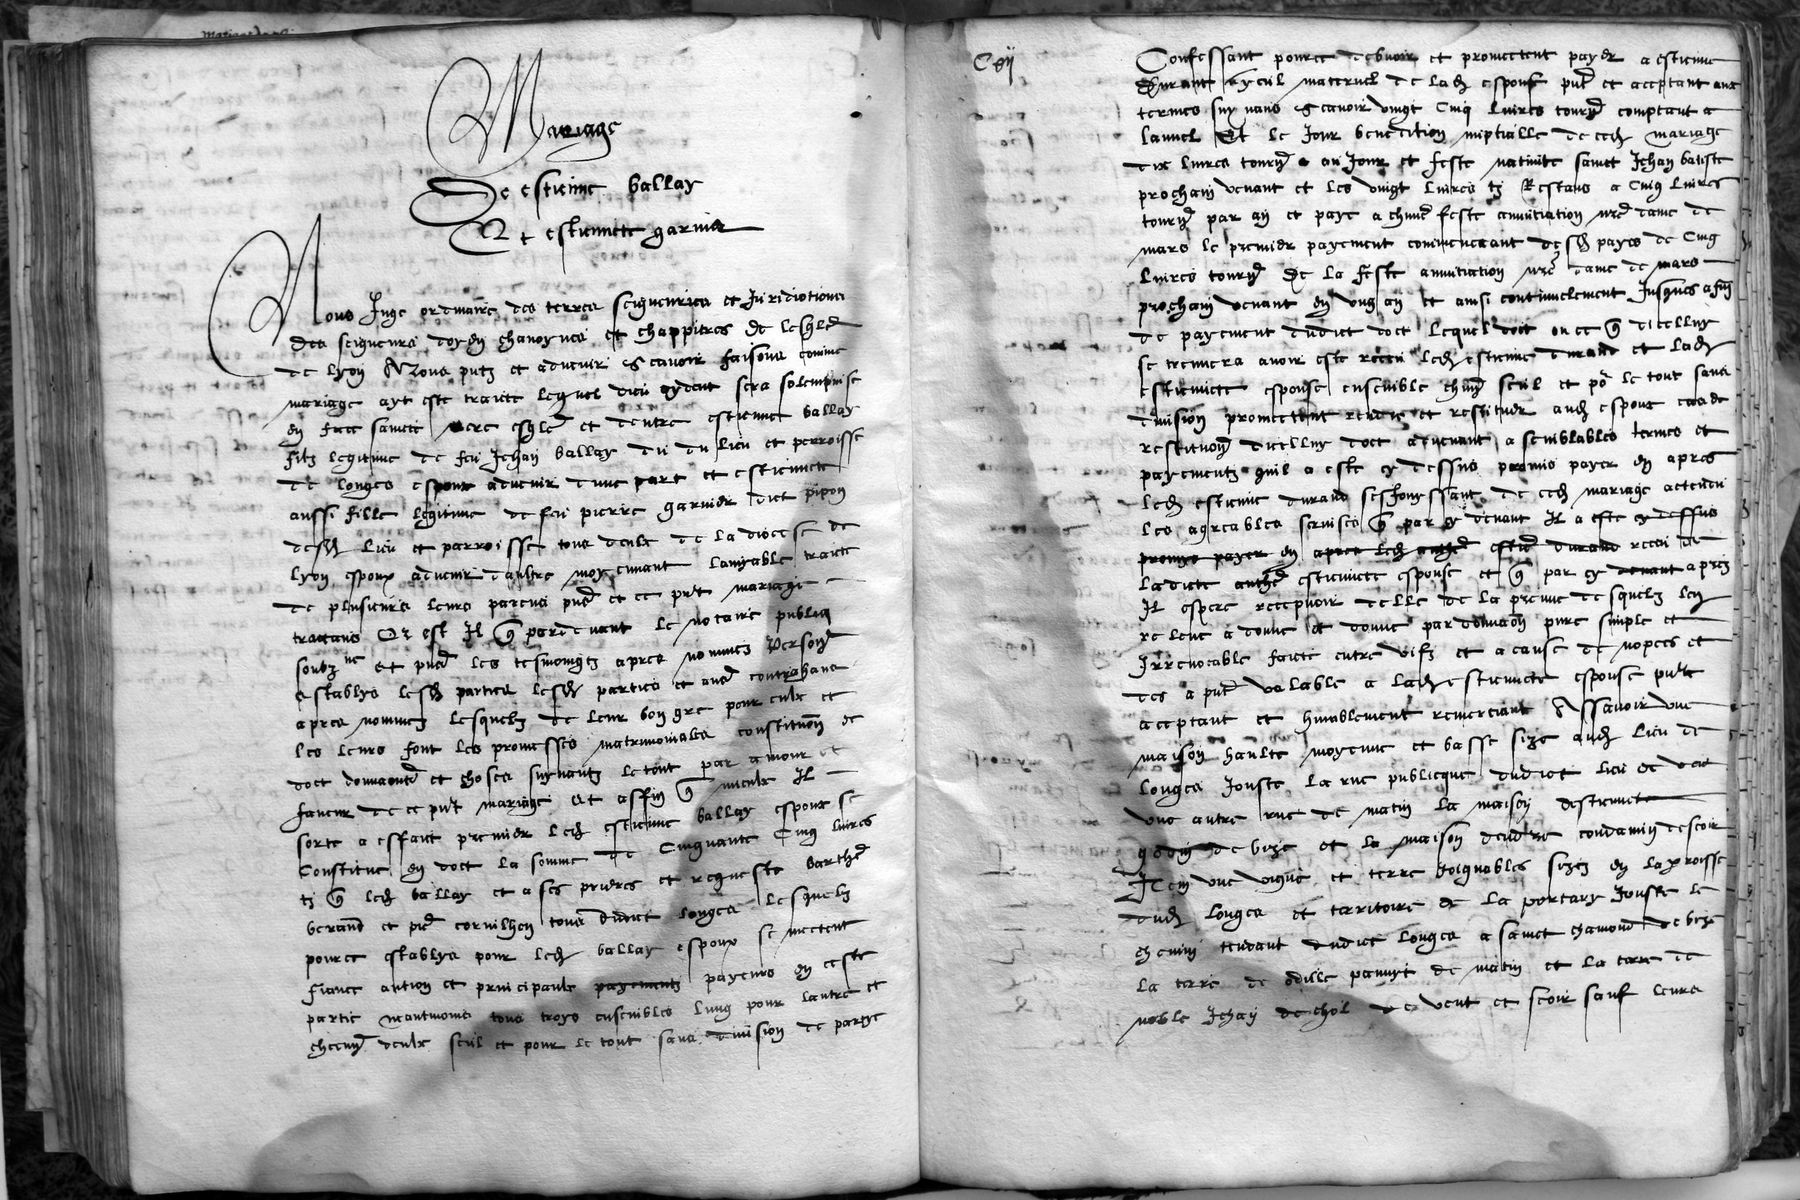 Mariage
De estienne ballay
Et estiennete garnier
Nous Juge ordinaire des terres seigneuries et Juridictions
des seigneurs doyen chanoynes et chappitres de lesgle
de lyon A tous putz et advenir Scavoir faisons comme
mariage ayt este traicte lequel dieu aydent sera solempnise
en face saincte mere esgle et dentre estienne ballay
filz legitime de feu Jehan ballay du lieu et perroisse
de longes espoux advenir dune part et estiennete
aussi fille legitime de feu pierre garnier dict pipon
desd lieu et parroisse tous deulx de la diocese de
lyon espoux advenir daultre moyennant lamyable traicte
de plusieurs leurs parens et ce put mariage
traictans Or est Il q pardevant le notaire publicq
soubz ne et les tesmoingtz apres nommez
establys lesd parties lesd parties et
apres nommez lesquelz de leur bon gre pour eulx et
les leurs font les promesses matrimoniales constitution de
doct et choses suyvantz le tout par amour et
faveur de ce put mariage et affin q mieulx Il
sorte a effaict premier led estienne ballay espoux se
Constitue en doct la somme de Cinquante Cinq livres
tz q led ballay et a ses prieres et requeste barthe
berand et pre cornilhon tous dudict longes lesquelz
pource establys pour led ballay espoux se mectent
fiance aution et principaulx payements payeurs en ceste
partie neantmoins tous troys ensembles lung pour lautre et
checung deulx seul et pour le tout sans division de partye
Confessant pource debvoir et promectent payer a estienne
Durant oncal maternel de lad espouse put et acceptant aux
termes suyvans Scavoir vingt Cinq livres tourn comptant a
lanuel Et le Jour benedition nuptialle de ced mariage
dix livres tourn a au Jour et feste nativite sainct Jehan batiste
prochain venant et les vingt livres tz Restans a Cinq livres
tourn par an et paye a chune feste annuntiation nre dame de
mars le premier payement commencant desd payes de Cinq
livres tourn De la feste annuntiation nre dame de mars
prochain venant en ung an et ainsi continuelement Jusques a fin
de payement dudict doct lequel doct ou ce q dicelluy
se treuvera avoir este receu led estienne durand et lad
estiennete espouse ensemble chung seul et po le tout sans
division promectent rendre et restituer aud espoux
restitution dicelluy doct advenant a semblables termes et
payementz quil a este cy dessus promis payer En apres
led estienne durand sesjouyssant de ced mariage actendu
les agreables services q par cy devant Il a este cy dessus
promys payer en apres led estie durand receu de
ladicte estiennete espouse et q par cy devant apres
Il espere recepvoir delle de la preuve desquelz la
releve a donne et donne par donnaon pure simple et
Irrevocable faicte entre vifz et a cause de nopces et
des a put valable a lad estiennete espouse pnte
acceptant et humblement remerciant Assavoir une
maison haulte moyenne et basse size aud lieu de
longes Jouste la rue publicque dudict lieu de vent
une autre rue de matin la maison destiennete
de bize et la maison dandre condamin de soir
Item une vigne et terre Joignables sizes en la proisse
dud longes et territoire de la portary Jouste le
chemin tendant dudict longes a sainct chamond de bize
la terre de odille panuyt de matin et la terre de
noble Jehan de chol de vent et soir sauf leurs